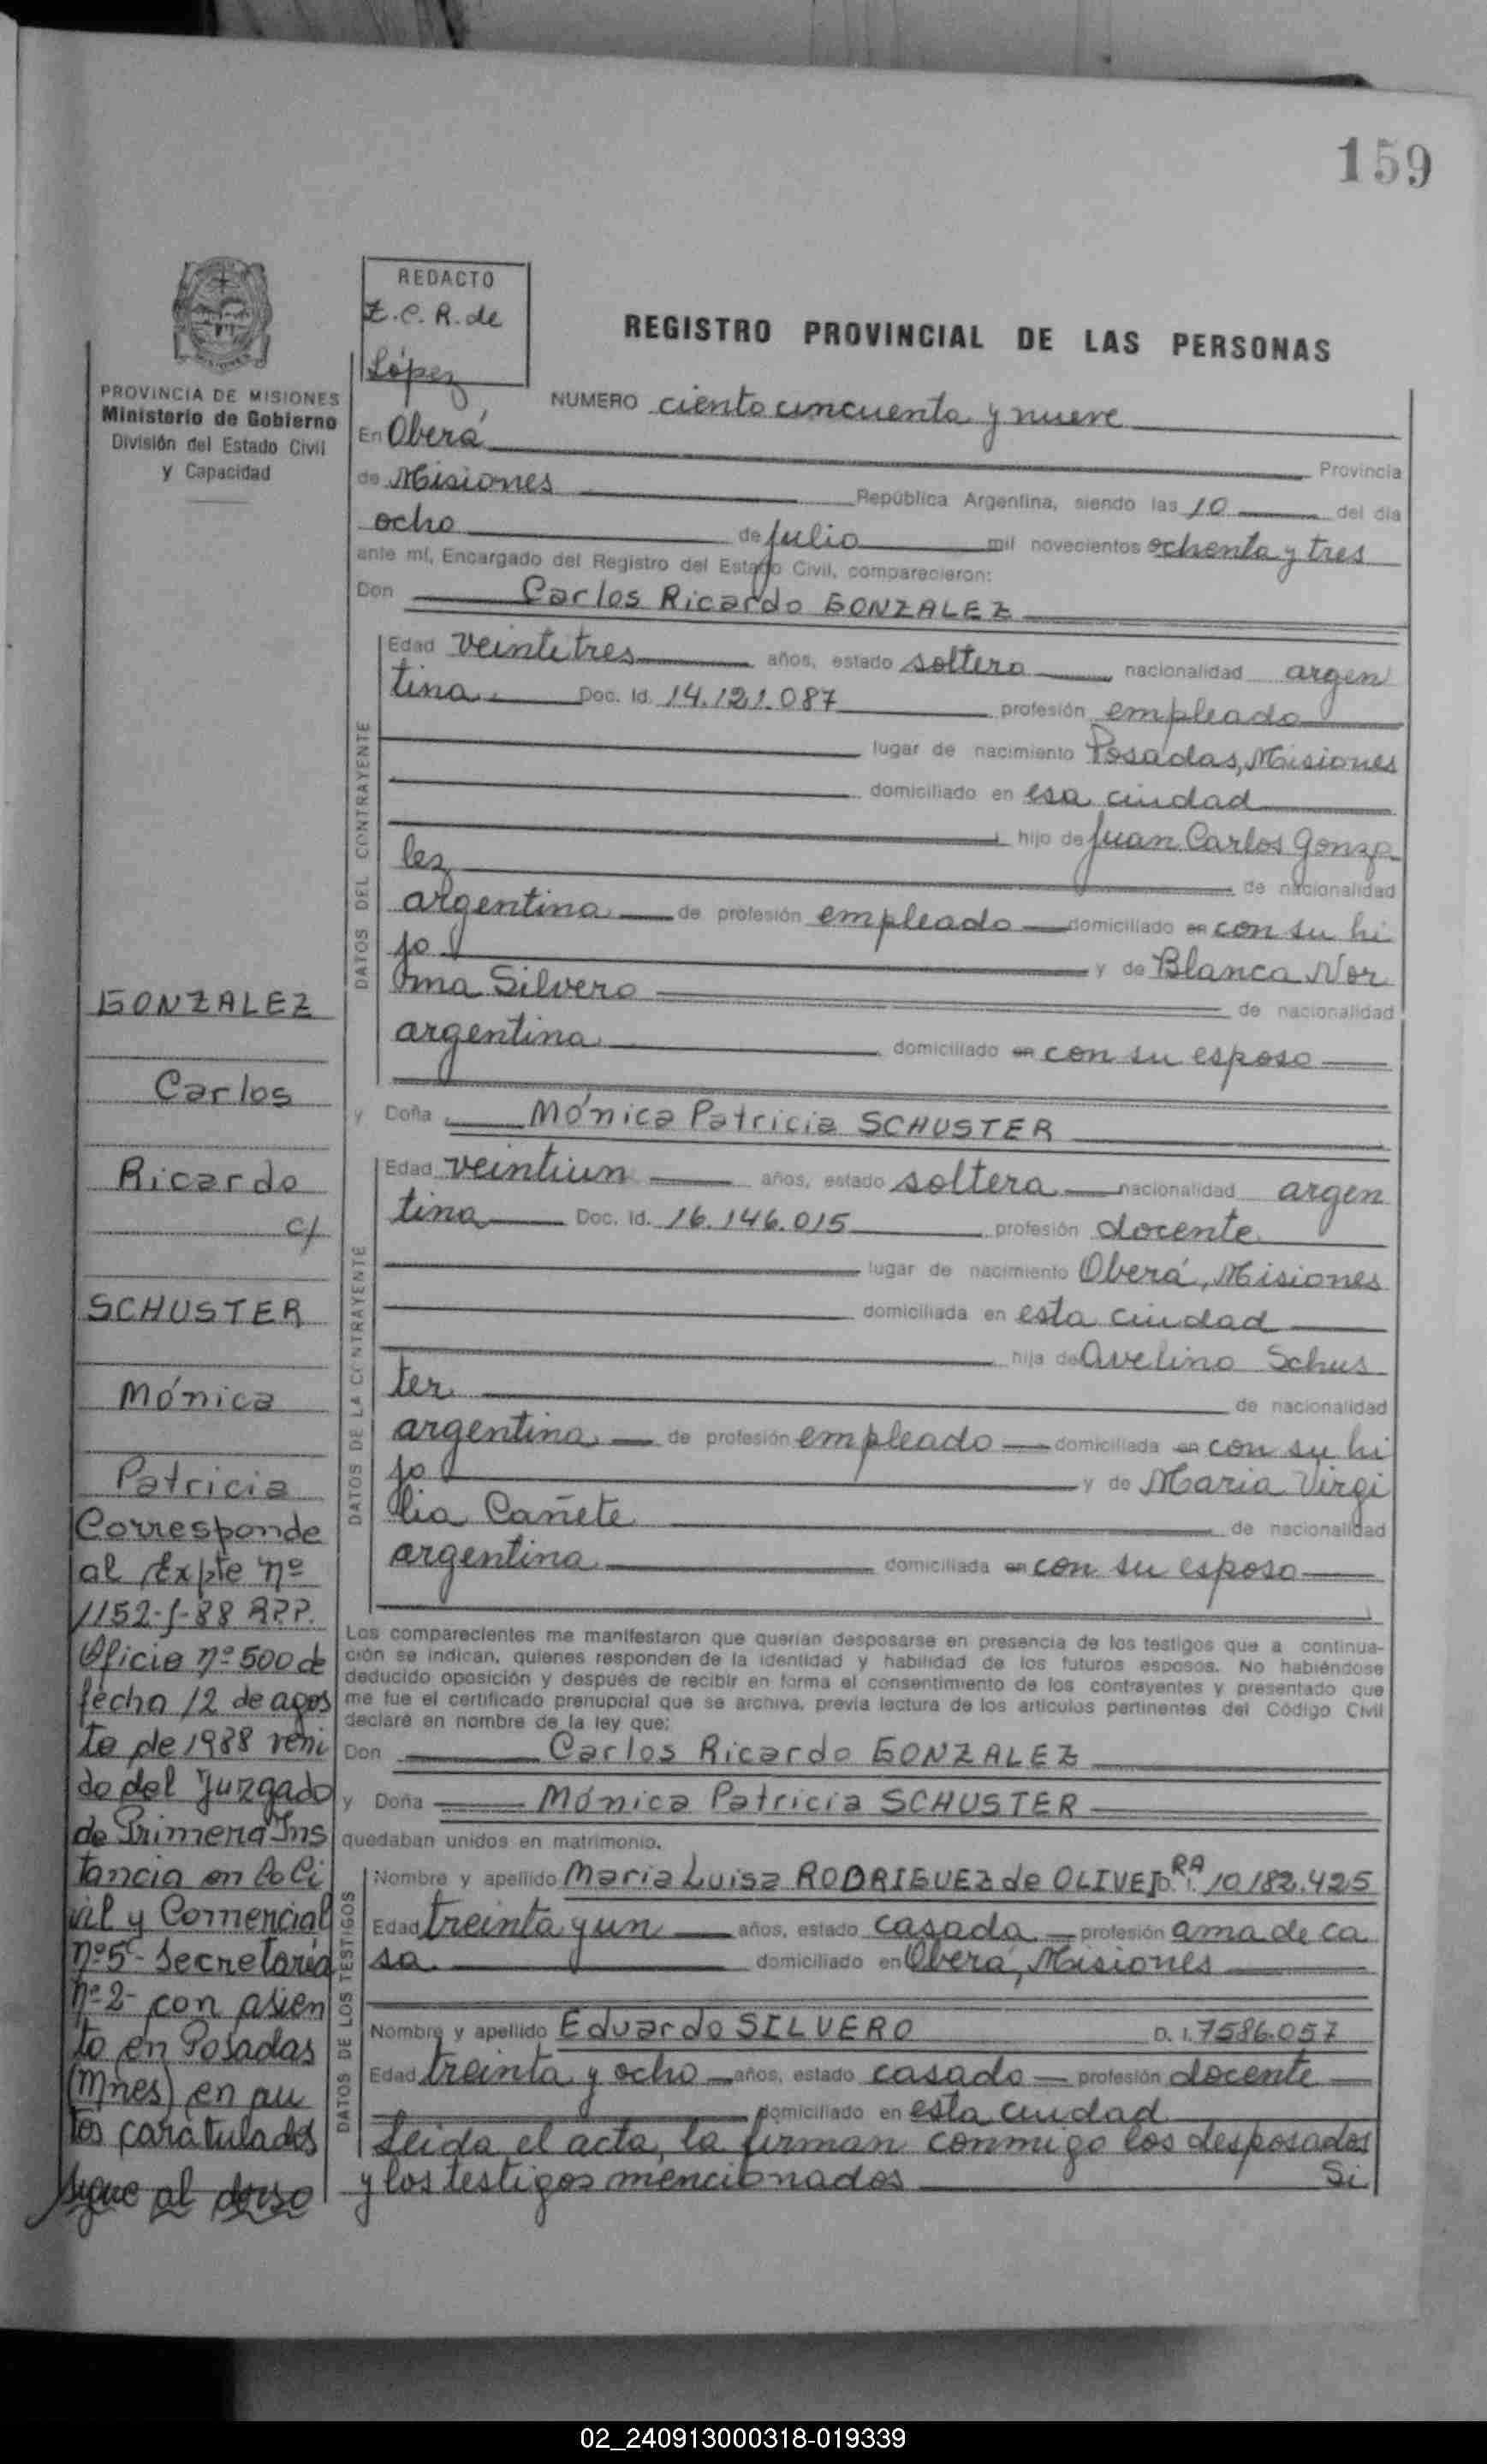 159
REDACTO
Z.C.R. de
López
REGISTRO PROVINCIAL DE LAS PERSONAS
PROVINCIA DE MISIONES
Ministerio de Gobierno
División del Estado Civil
y Capacidad
NUMERO ciento cincuenta y nueve
En Oberá Provincia
de Misiones República Argentina, siendo las 10 del día
ocho de julio mil novecientos ochenta y tres
ante mí, Encargado del Registro del Estado Civil, comparecieron:
Don Carlos Ricardo GONZALEZ
DATOS DEL CONTRAYENTE
Edad veintitres años, estado soltero nacionalidad argen
tina Doc. Id. 14.121.087 profesión empleado
lugar de nacimiento Posadas, Misiones
domiciliado en esa ciudad
hijo de Juan Carlos Gonza
lez de nacionalidad
argentina de profesión empleado domiciliado en con su hi
jo y de Blanca Nor
ma Silvero de nacionalidad
argentina domiciliado en con su esposo
y Doña Mónica Patricia SCHUSTER
DATOS DE LA CONTRAYENTE
Edad veintiun años, estado soltera nacionalidad argen
tina Doc. Id. 16.146.015 profesión docente
lugar de nacimiento Oberá, Misiones
domiciliada en esta ciudad
hija de Avelino Schus
ter de nacionalidad
argentina de profesión empleado domiciliada en con su hi
jo y de Maria Virgi
lia Cañete de nacionalidad
argentina domiciliada en con su esposo
Los comparecientes me manifestaron que querían desposarse en presencia de los testigos que a continua-
ción se indican, quienes responden de la identidad y habilidad de los futuros esposos. No habiéndose
deducido oposición y después de recibir en forma el consentimiento de los contrayentes y presentado que
me fue el certificado prenupcial que se archiva, previa lectura de los artículos pertinentes del Código Civil
declaré en nombre de la ley que:
Don Carlos Ricardo GONZALEZ
y Doña Mónica Patricia SCHUSTER
quedaban unidos en matrimonio.
DATOS DE LOS TESTIGOS
Nombre y apellido Maria Luisa RODRIGUEZ de OLIVEIRA D. I. 10.182.425
Edad treinta y un años, estado casada profesión ama de ca
sa domiciliado en Oberá, Misiones
Nombre y apellido Eduardo SILVERO D. I. 7586.057
Edad treinta y ocho años, estado casado profesión docente
domiciliado en esta ciudad
Leida el acta, la firman conmigo los desposados
y los testigos mencionados Si
GONZALEZ
Carlos
Ricardo
c/
SCHUSTER
Mónica
Patricia
Corresponde
al Expte nº
1152-J-88 R.P.P.
Oficio nº 500 de
fecha 12 de agos
to de 1988 veni
do del Juzgado
de Primera Ins
tancia en lo Ci
vil y Comercial
nº 5 - Secretaría
nº 2 - con asien
to en Posadas
(Mnes) en au
tos caratulados
sigue al dorso
02_240913000318-019339